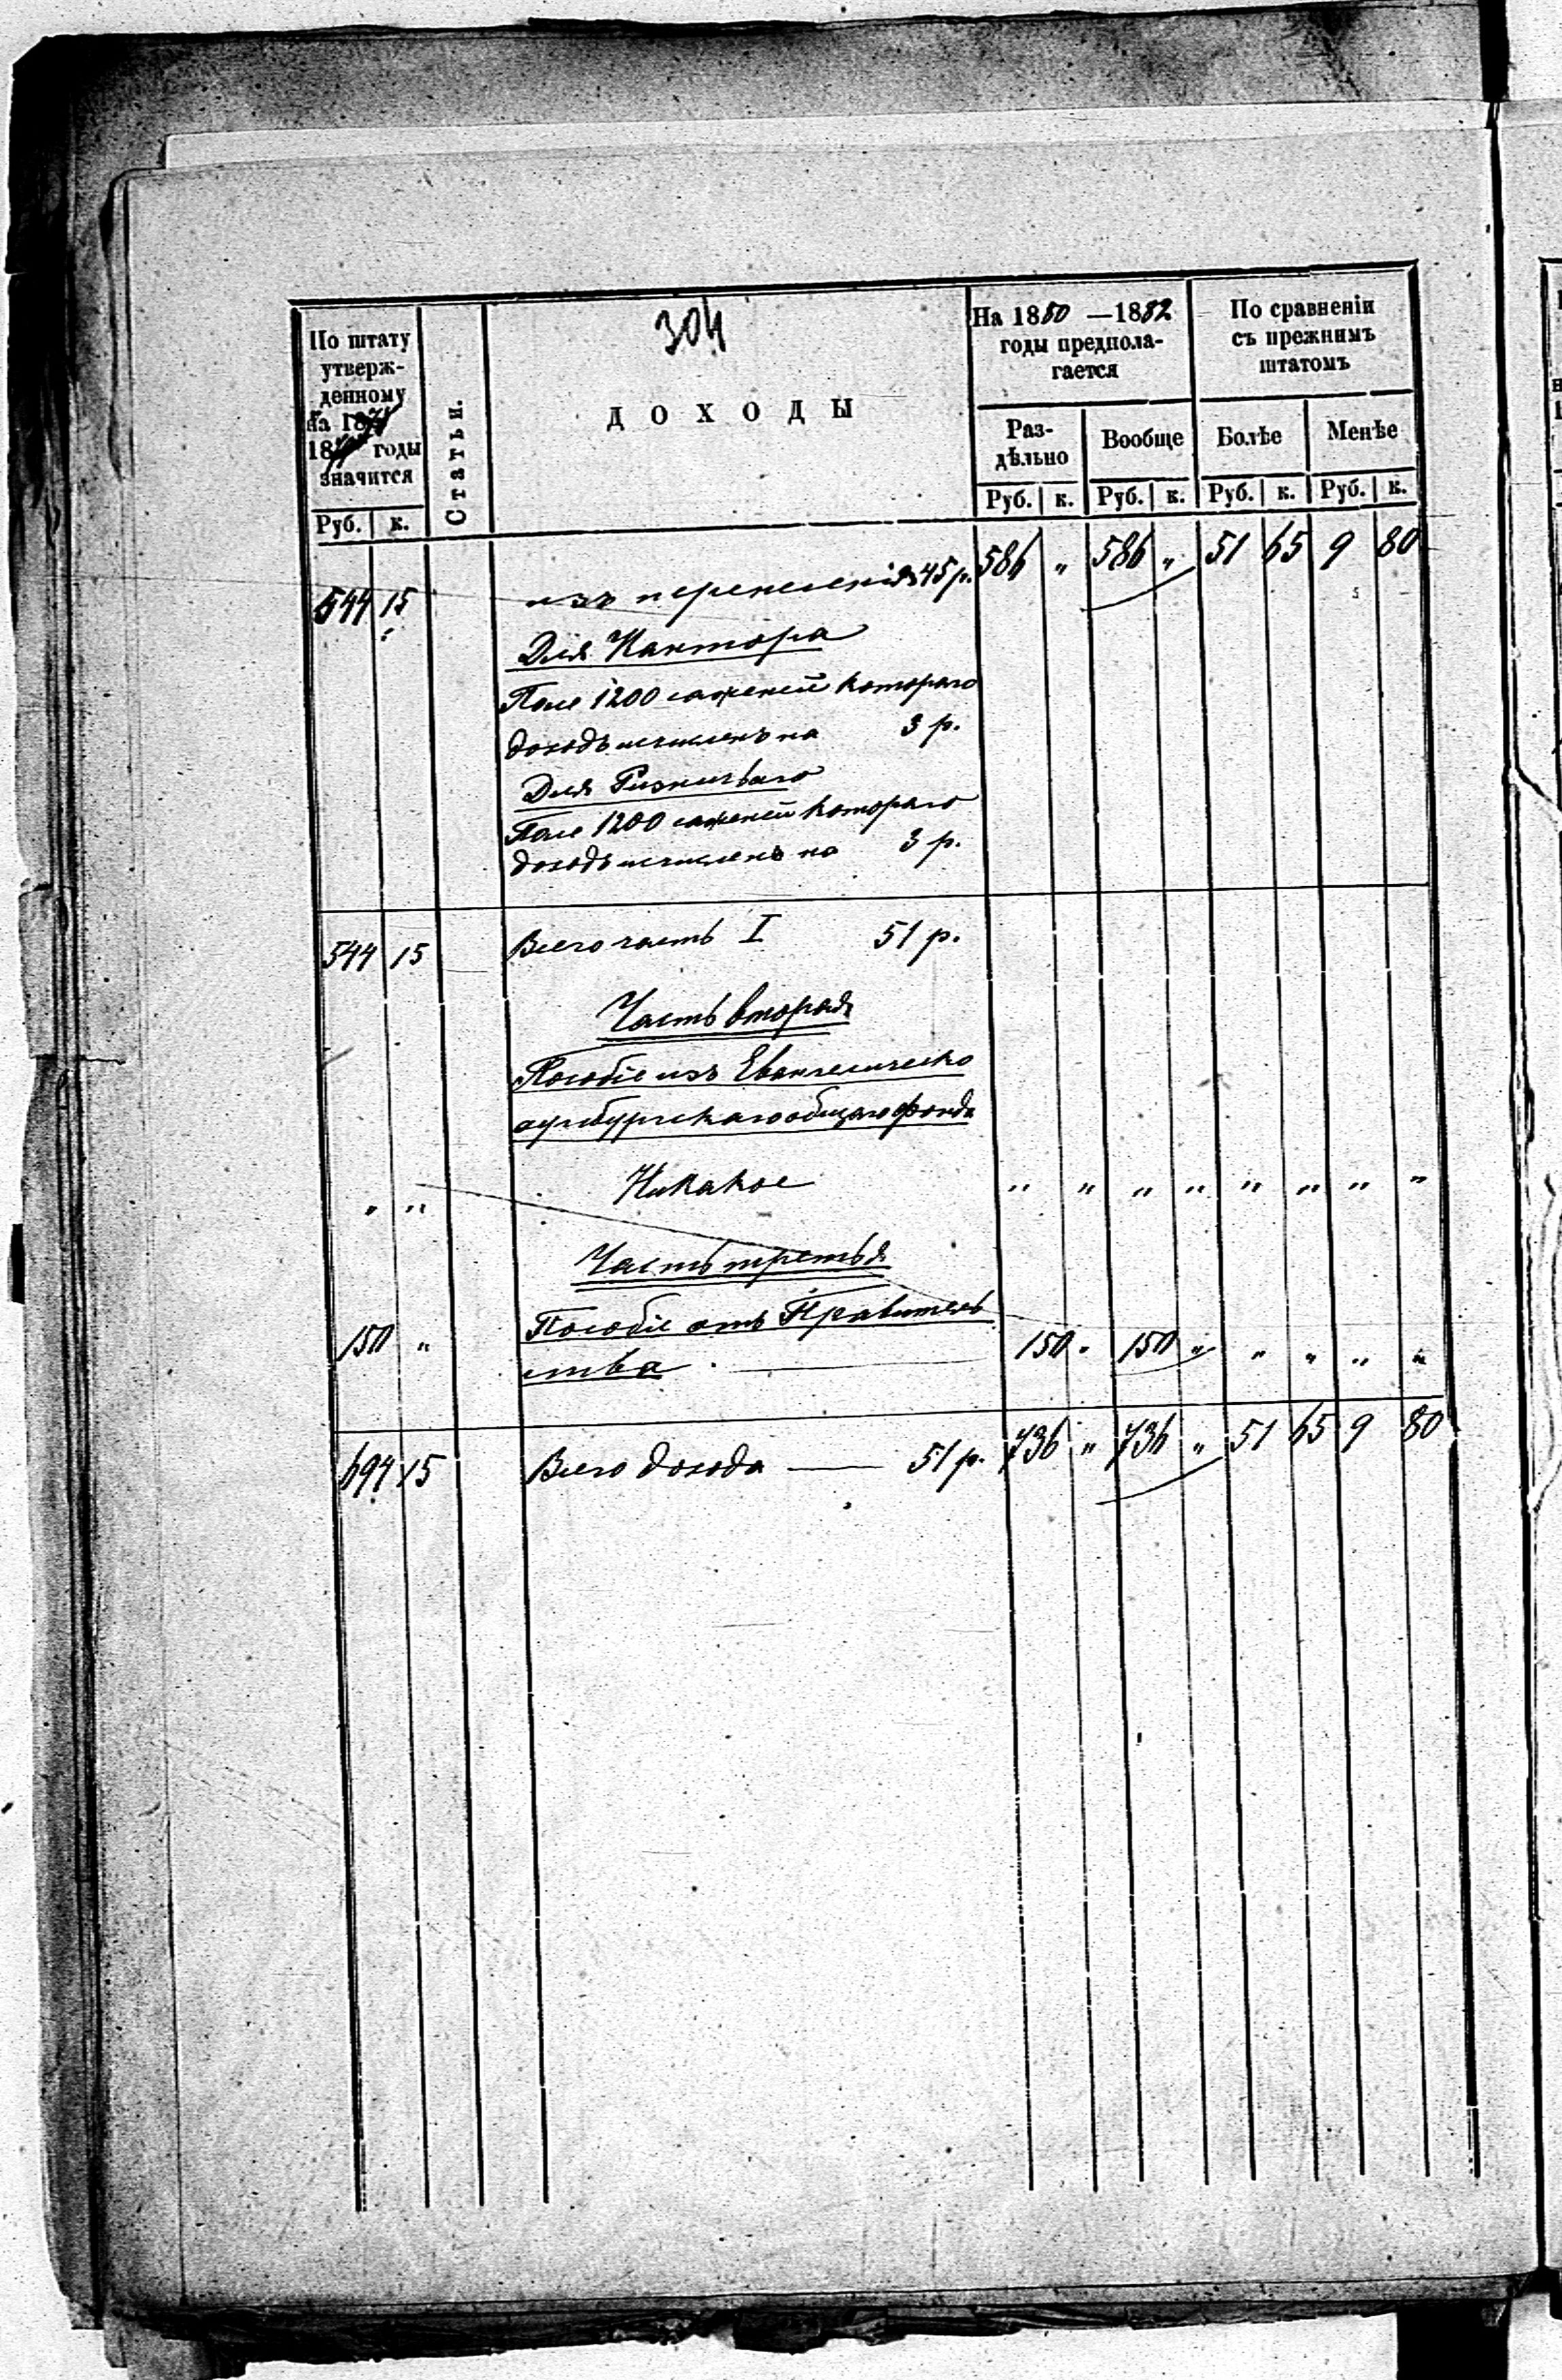 304
По штату
утверж-
денному
на 18
18 годы
значится
Руб. к.
Статьи.
ДОХОДЫ
На 1880 —1882
годы предпола-
гается
Раз-
дѣльно
Вообще
Руб. к. Руб. к.
По сравненіи
съ прежнимъ
штатомъ
Болѣе Менѣе
Руб. к. Руб. к.
544 15 изъ перенесенія 45 р. 586 " 586 " 51 65 9 80
Для Кантора
Поле 1200 саженей котораго
доходъ исчисленъ на 3 р.
Для Ризничьаго
Поле 1200 саженей котораго
доходъ исчисленъ на 3 р.
544 15 Всего часть I 51 р.
Часть вторая
Пособіе изъ Евангелическо
аугсбургскаго общаго фонда
" " Никакое " " " " " " " "
Часть третья
Пособіе отъ Правитель
150 " ства 150 " 150 " " " " "
694 15 Всего дохода — 51 р. 736 " 736 " 51 65 9 80